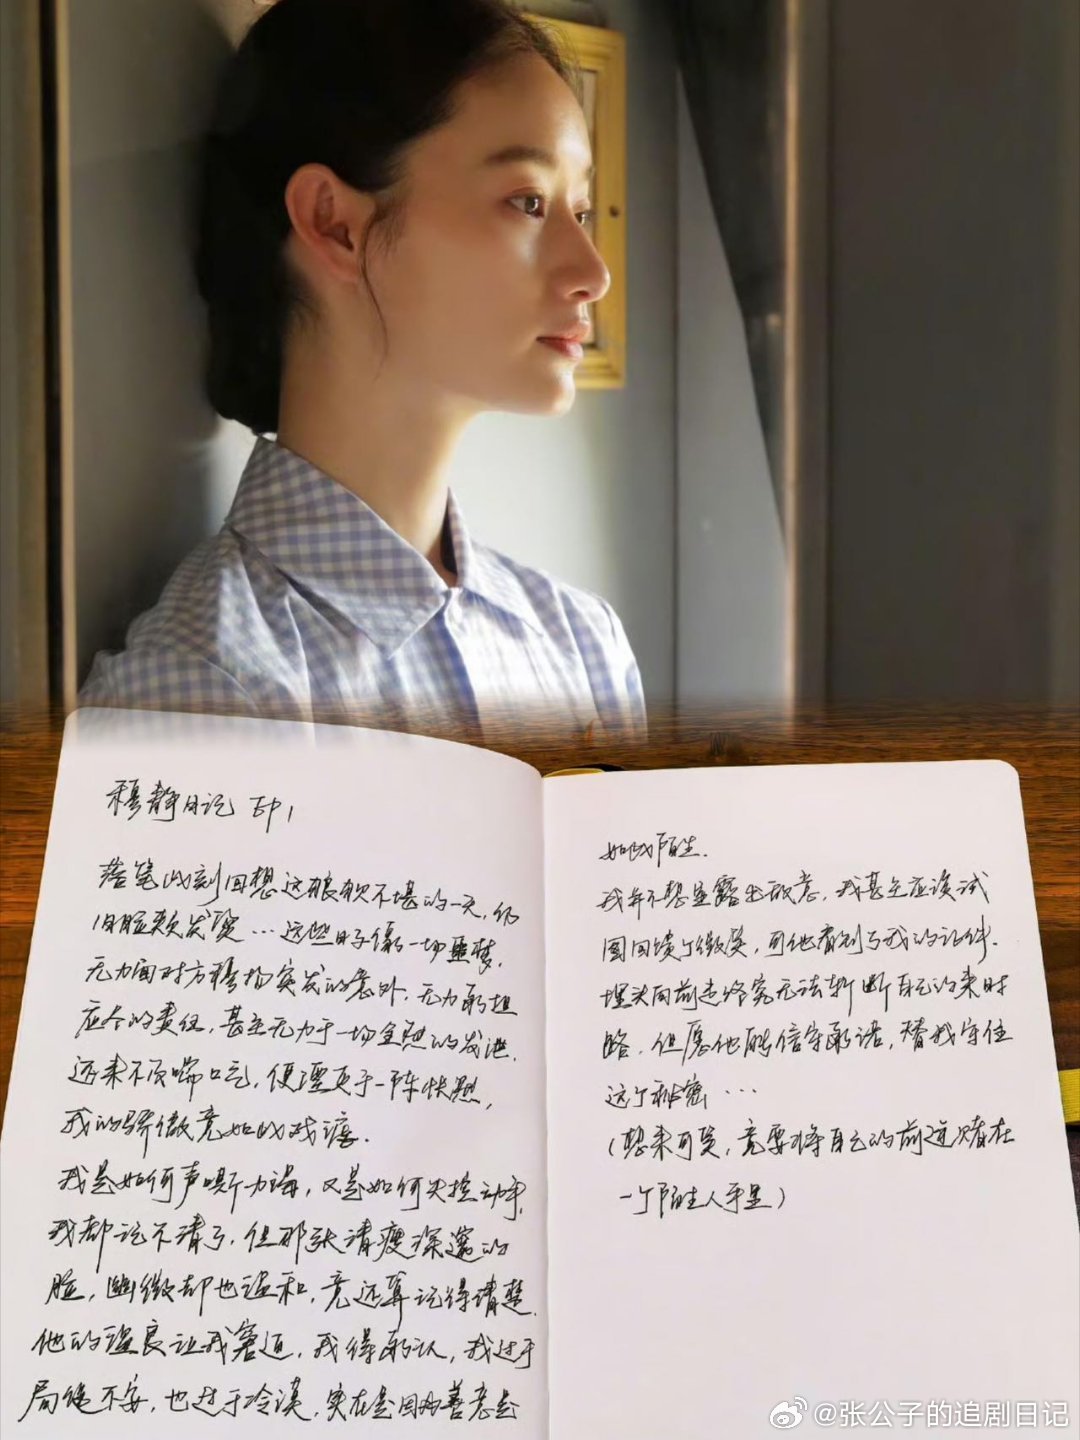 穆静日记 EP1
落笔此刻回想这狼狈不堪的一天，仍
旧脸颊发烫…这些日子像一场噩梦，
无力面对方穆扬突发的意外，无力承担
的责任，甚至无力于一场的发泄.
还来不及喘口气，便于一阵
我的骄傲竟如此戏谑.
我是如何声嘶力竭，又是如何失控动手，
我都记不清了，但那张清瘦深邃的
脸，幽微却也温和，竟还算记得清楚.
他的温良让我窘迫，我得承认，我过于
局促不安，也过于冷漠，实在是因为善意是
如此陌生.
我并不想显露出敌意，我甚至应该试
图回馈个微笑，可他看到了我的证件.
埋头向前走终究无法斩断自己的来时
路，但愿他能信守承诺，替我守住
这个秘密…
（想来可笑，竟要将自己的前途赌在
一个陌生人手里）
@张公子的追剧日记